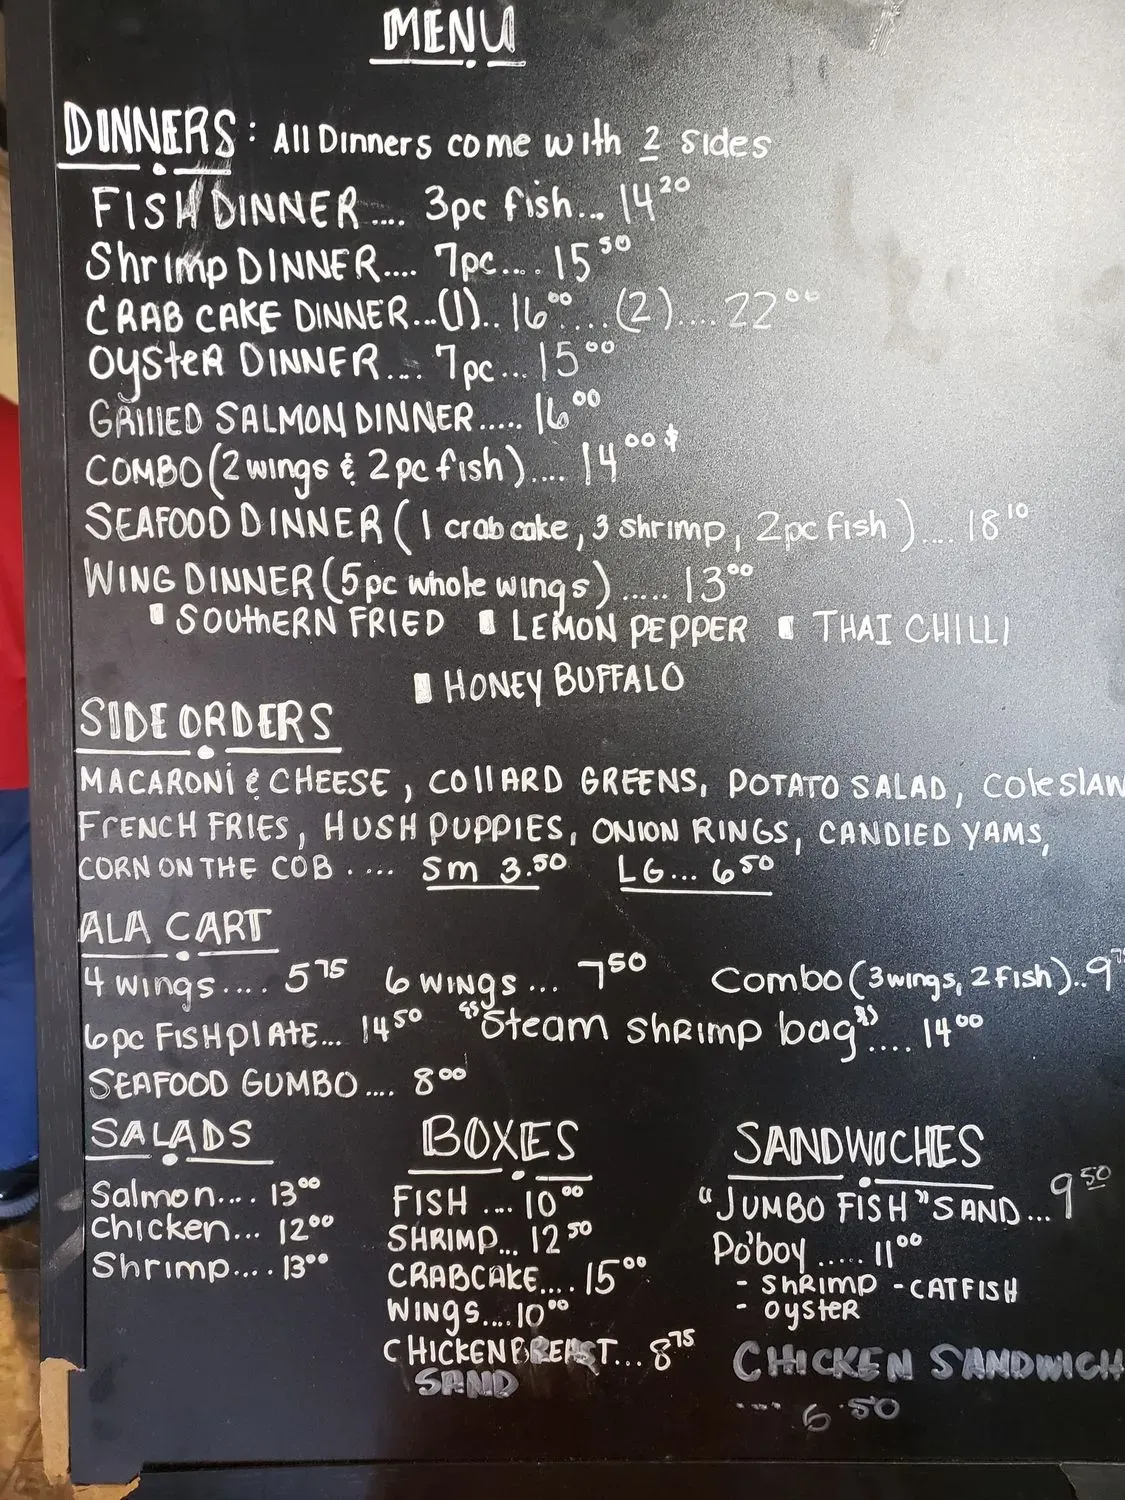 MENU
DINNERS: All Dinners come with 2 sides
FISH DINNER.... 3pc fish... 14 20
Shrimp DINNER.... 7pc.... 15 50
CRAB CAKE DINNER...(1).. 16 00 ....(2).... 22 00
OysteR DINNER.... 7pc... 15 00
GRIllED SALMON DINNER..... 16 00
COMBO (2 wings & 2pc fish).... 14 00 $
SEAFOOD DINNER (1 crab cake, 3 shrimp, 2pc fish).... 18 10
WING DINNER (5pc whole wings)..... 13 00
SOUthERN FRIED LEMON PEPPER THAI CHILLI
HONEY BUFFALO
SIDE ORDERS
MACARONi & CHEESE, COllARD GREENS, POTATO SALAD, ColeslAW
FRENCH FRIES, HUSH PUPPIES, ONION RINGS, CANDIED YAMS,
CORN ON THE COB .... Sm 3.50 LG... 6 50
ALA CART
4 wings.... 5 75 6 WINGS... 7 50 Combo (3 wings, 2 fish).. 9 75
6pc FISHplAtE... 14 50 "Steam shRimp bag".... 14 00
SEAFOOD GUMBO.... 8 00
SALADS BOXES SANDWICHES
Salmon.... 13 00
chicken... 12 00
Shrimp.... 13 00
FISH .... 10 00
SHRIMP... 12 50
CRABCAKE.... 15 00
WINGS.... 10 00
CHICKEN BREAST... 8 75
SAND
"JUMBO FISH" SAND... 9 50
Po'boy ..... 11 00
- ShRimp - CATFISH
- oysteR
CHICKEN SANDWICH
.... 6.50